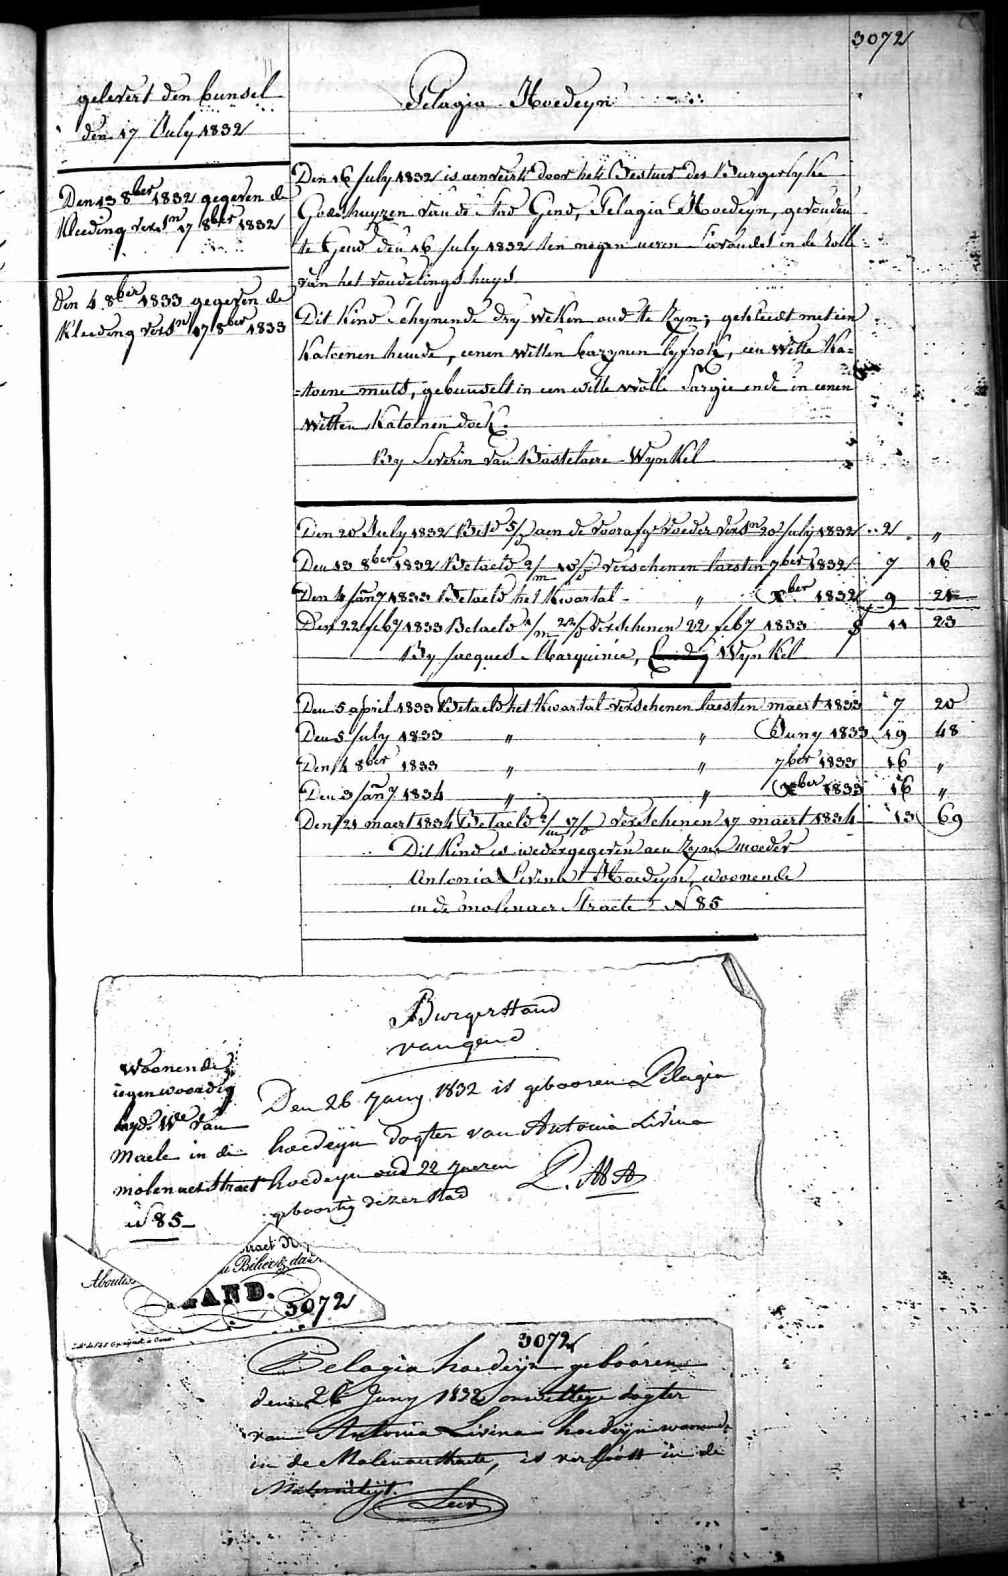 3072
gelevert den bunsel
den 17 July 1832
Den 13 8ber 1832 gegeven de
Kleeding versn 17 8ber 1832
Den 4 8ber 1833 gegeven de
Kleeding versn 17 8ber 1833
Pelagia Hoedeyn
Den 16 July 1832 is aenveirt door het Bestuer der Burgerlyke
Godshuyzen van de stad Gend, Pelagia Hoedeyn, gevonden
te Gend den 16 July 1832 ten negen ueren s'avonds in de rolle
van het vondelings huys
Dit Kind schynende dry weken oud te zyn; gekleedt met een
Katoenen hemde, eenen witten bazynen lyfrok, een witte Ka=
=toene muts, gebunselt in een witte wolle Sargie ende in eenen
witten Katoenen doek.
By Severin van Bastelaere Wynkel
Den 20 July 1832 Betd 5/d aen de voorafge voeder versn 20 July 1832 .. 2 „
Den 13 8ber 1832 Betaeld 2/m 10/d verschenen laesten 7ber 1832 7 16
Den 4 Jany 1833 Betaeld het Kwartal „ Xber 1832 9 21
Den 22 feby 1833 Betaeld 1/m 22/d verschenen 22 feby 1833 11 23
By Jacques Marquinie, Wynkel
Den 5 april 1833 Betaeld het Kwartal verschenen laesten maert 1833 7 20
Den 5 July 1833 „ „ Juny 1833 19 48
Den 4 8ber 1833 „ „ 7ber 1833 16 „
Den 3 Jany 1834 „ „ Xber 1833 16 „
Den 21 maert 1834 Betaeld 2/m 17/d verschenen 17 maert 1834 13 69
Dit Kind is wedergegeven aen zyne moeder
Antonia Livina Hoedeyn, woonende
in de molenaer Straete N 85
Burgerstand
van gend
Woonende
tegenwoordig
by de We van
Maele in de
molenaerstraet
N 85
Den 26 Juny 1832 is gebooren Pelagia
hoedeyn dogter van Antonia Livina
hoedeyn oud 22 Jaeren
geboortig dezer stad
Aboutis
straet N
Béliers, da
GAND.
3072
3072
Pelagia hoedeyn gebooren
den 26 Juny 1832 onwettige dogter
van Antonia Livina hoedeyn woonende
in de Molenaerstraete, is verlost in de
Maternityt.